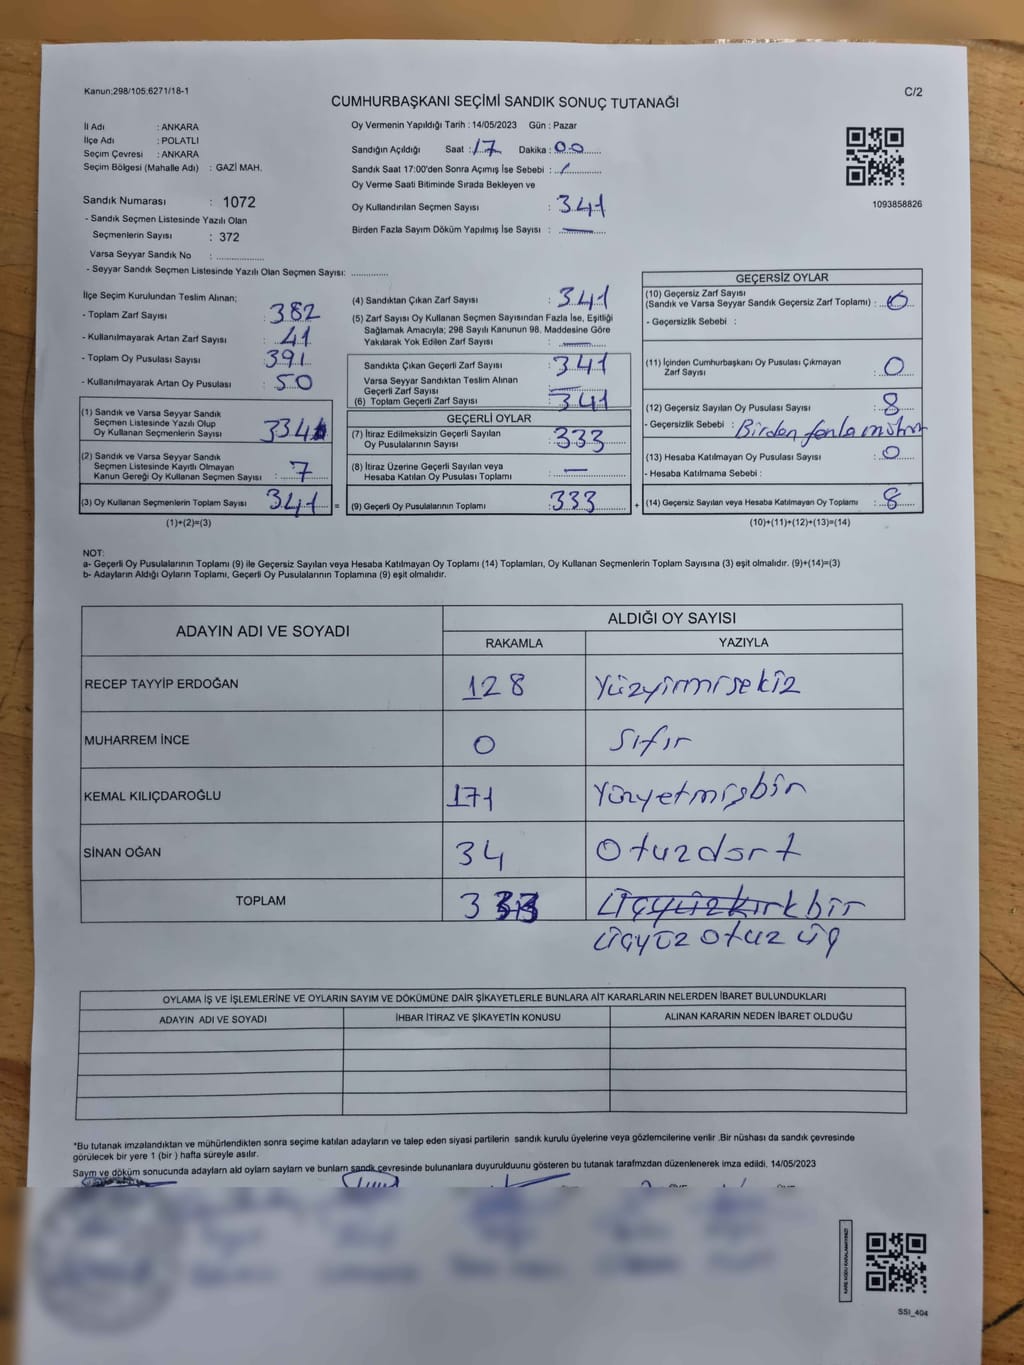 Kanun;298/105;6271/18-1
C/2
CUMHURBAŞKANI SEÇİMİ SANDIK SONUÇ TUTANAĞI
İl Adı : ANKARA
İlçe Adı : POLATLI
Seçim Çevresi : ANKARA
Seçim Bölgesi (Mahalle Adı) : GAZİ MAH.
Sandık Numarası : 1072
- Sandık Seçmen Listesinde Yazılı Olan
Seçmenlerin Sayısı : 372
Varsa Seyyar Sandık No : ..................
- Seyyar Sandık Seçmen Listesinde Yazılı Olan Seçmen Sayısı: ..............
Oy Vermenin Yapıldığı Tarih : 14/05/2023 Gün : Pazar
Sandığın Açıldığı Saat : 17 Dakika : 00
Sandık Saat 17:00'den Sonra Açımış İse Sebebi : /
Oy Verme Saati Bitiminde Sırada Bekleyen ve
Oy Kullandırılan Seçmen Sayısı : 341
Birden Fazla Sayım Döküm Yapılmış İse Sayısı : —
1093858826
İlçe Seçim Kurulundan Teslim Alınan;
- Toplam Zarf Sayısı : 382
- Kullanılmayarak Artan Zarf Sayısı : 41
- Toplam Oy Pusulası Sayısı : 391
- Kullanılmayarak Artan Oy Pusulası : 50
(1) Sandık ve Varsa Seyyar Sandık
Seçmen Listesinde Yazılı Olup
Oy Kullanan Seçmenlerin Sayısı : 334
(2) Sandık ve Varsa Seyyar Sandık
Seçmen Listesinde Kayıtlı Olmayan
Kanun Gereği Oy Kullanan Seçmen Sayısı : 7
(3) Oy Kullanan Seçmenlerin Toplam Sayısı : 341 =
(1)+(2)=(3)
(4) Sandıktan Çıkan Zarf Sayısı : 341
(5) Zarf Sayısı Oy Kullanan Seçmen Sayısından Fazla İse, Eşitliği
Sağlamak Amacıyla; 298 Sayılı Kanunun 98. Maddesine Göre
Yakılarak Yok Edilen Zarf Sayısı : —
Sandıkta Çıkan Geçerli Zarf Sayısı : 341
Varsa Seyyar Sandıktan Teslim Alınan
Geçerli Zarf Sayısı : —
(6) Toplam Geçerli Zarf Sayısı : 341
GEÇERLİ OYLAR
(7) İtiraz Edilmeksizin Geçerli Sayılan
Oy Pusulalarının Sayısı : 333
(8) İtiraz Üzerine Geçerli Sayılan veya
Hesaba Katılan Oy Pusulası Toplamı : —
(9) Geçerli Oy Pusulalarının Toplamı : 333 +
GEÇERSİZ OYLAR
(10) Geçersiz Zarf Sayısı
(Sandık ve Varsa Seyyar Sandık Geçersiz Zarf Toplamı) : 0
- Geçersizlik Sebebi :
(11) İçinden Cumhurbaşkanı Oy Pusulası Çıkmayan
Zarf Sayısı : 0
(12) Geçersiz Sayılan Oy Pusulası Sayısı : 8
- Geçersizlik Sebebi : Birden fazla mühür
(13) Hesaba Katılmayan Oy Pusulası Sayısı : 0
- Hesaba Katılmama Sebebi :
(14) Geçersiz Sayılan veya Hesaba Katılmayan Oy Toplamı : 8
(10)+(11)+(12)+(13)=(14)
NOT:
a- Geçerli Oy Pusulalarının Toplamı (9) ile Geçersiz Sayılan veya Hesaba Katılmayan Oy Toplamı (14) Toplamları, Oy Kullanan Seçmenlerin Toplam Sayısına (3) eşit olmalıdır. (9)+(14)=(3)
b- Adayların Aldığı Oyların Toplamı, Geçerli Oy Pusulalarının Toplamına (9) eşit olmalıdır.
ADAYIN ADI VE SOYADI
ALDIĞI OY SAYISI
RAKAMLA YAZIYLA
RECEP TAYYİP ERDOĞAN 128 Yüzyirmisekiz
MUHARREM İNCE 0 Sıfır
KEMAL KILIÇDAROĞLU 171 Yüzyetmişbir
SİNAN OĞAN 34 Otuzdört
TOPLAM 333 Üçyüzkırkbir
Üçyüz otuz üç
OYLAMA İŞ VE İŞLEMLERİNE VE OYLARIN SAYIM VE DÖKÜMÜNE DAİR ŞİKAYETLERLE BUNLARA AİT KARARLARIN NELERDEN İBARET BULUNDUKLARI
ADAYIN ADI VE SOYADI İHBAR İTİRAZ VE ŞİKAYETİN KONUSU ALINAN KARARIN NEDEN İBARET OLDUĞU
*Bu tutanak imzalandıktan ve mühürlendikten sonra seçime katılan adayların ve talep eden siyasi partilerin sandık kurulu üyelerine veya gözlemcilerine verilir .Bir nüshası da sandık çevresinde
görülecek bir yere 1 (bir ) hafta süreyle asılır.
Sayım ve döküm sonucunda adayların aldı oyların sayların ve bunların sandık çevresinde bulunanlara duyurulduunu gösteren bu tutanak tarafmzdan düzenlenerek imza edildi. 14/05/2023
SSI_404